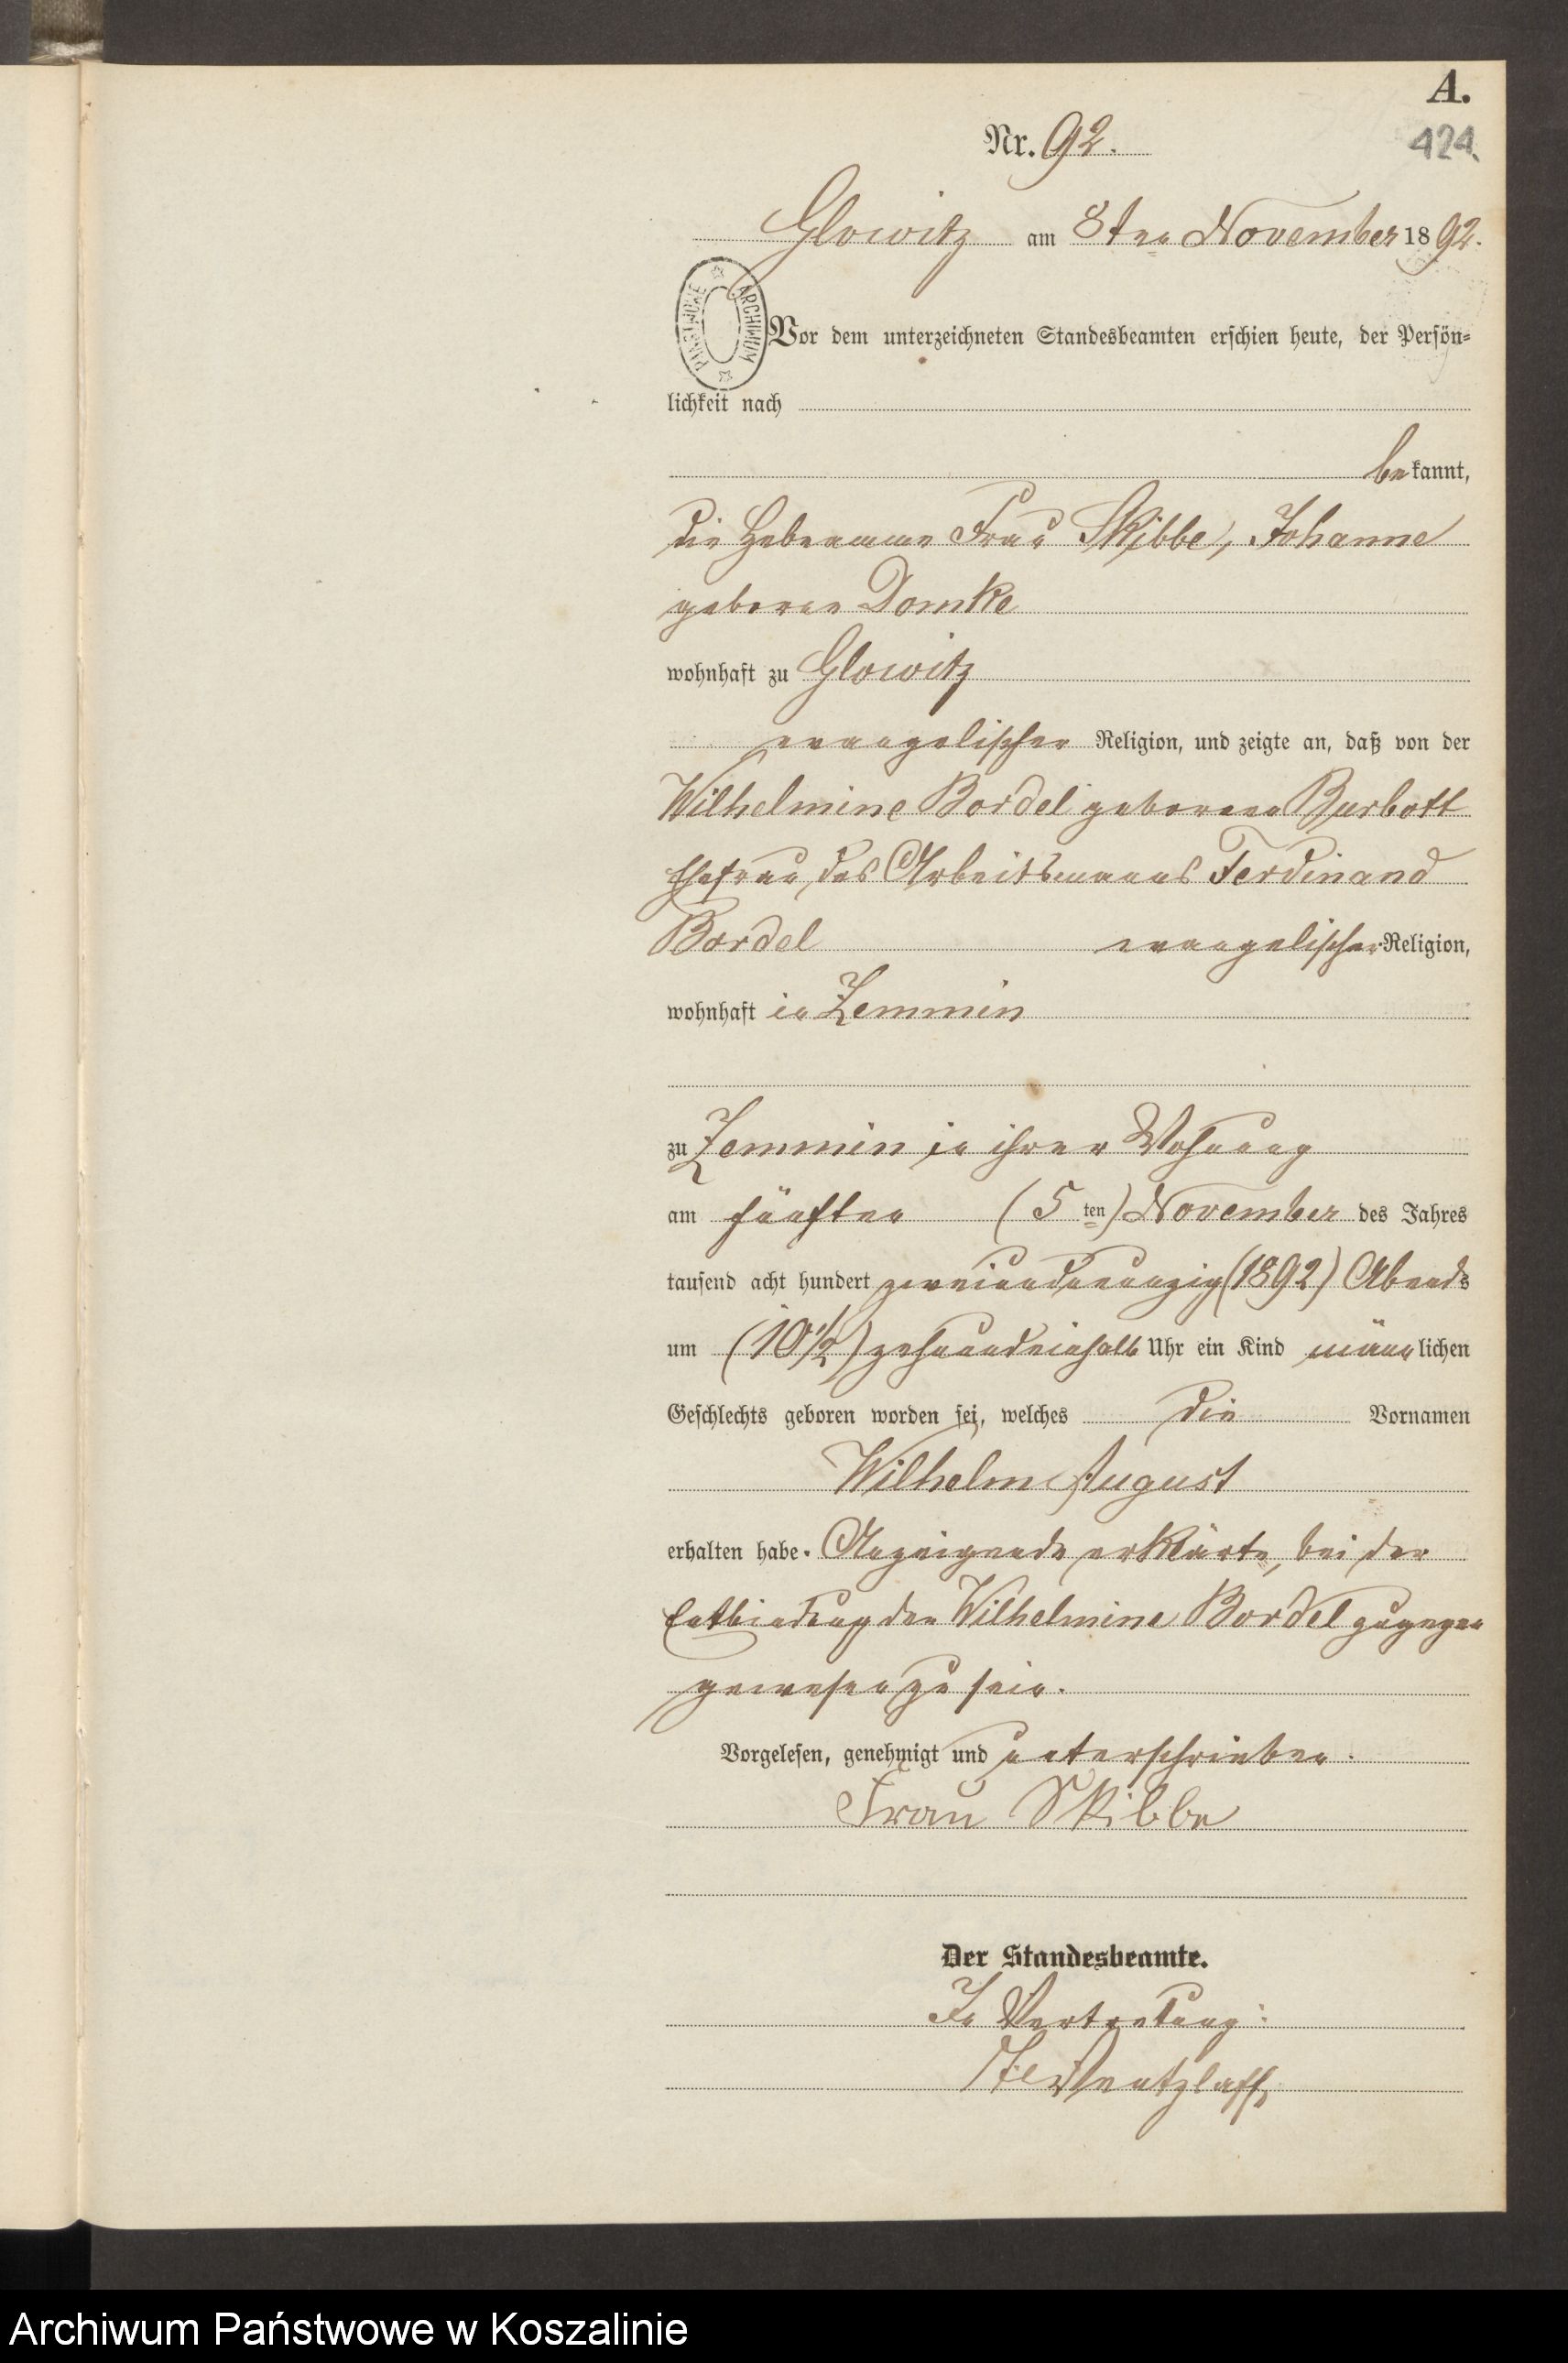 A.
Nr. 92.
424.
Glowitz am 8ten November 1892.
PAŃSTWOWE ARCHIWUM
Vor dem unterzeichneten Standesbeamten erschien heute, der Persön-
lichkeit nach
bekannt,
die Hebeamme Frau Skibbe, Johanne
geboren Domke
wohnhaft zu Glowitz
evangelischer Religion, und zeigte an, daß von der
Wilhelmine Bordel geborenen Burbott
Ehefrau des Arbeitsmanns Ferdinand
Bordel evangelischer Religion,
wohnhaft in Zemmin
zu Zemmin in ihrer Wohnung
am fünften (5ten) November des Jahres
tausend acht hundert zweiundneunzig (1892) Abends
um (10 1/2) zehnundeinhalb Uhr ein Kind männlichen
Geschlechts geboren worden sei, welches die Vornamen
Wilhelm August
erhalten habe. Anzeigende erklärte, bei der
Entbindung der Wilhelmine Bordel zugegen
gewesen zu sein.
Vorgelesen, genehmigt und unterschrieben.
Frau Skibbe
Der Standesbeamte.
In Vertretung:
Wentzlaff
Archiwum Państwowe w Koszalinie